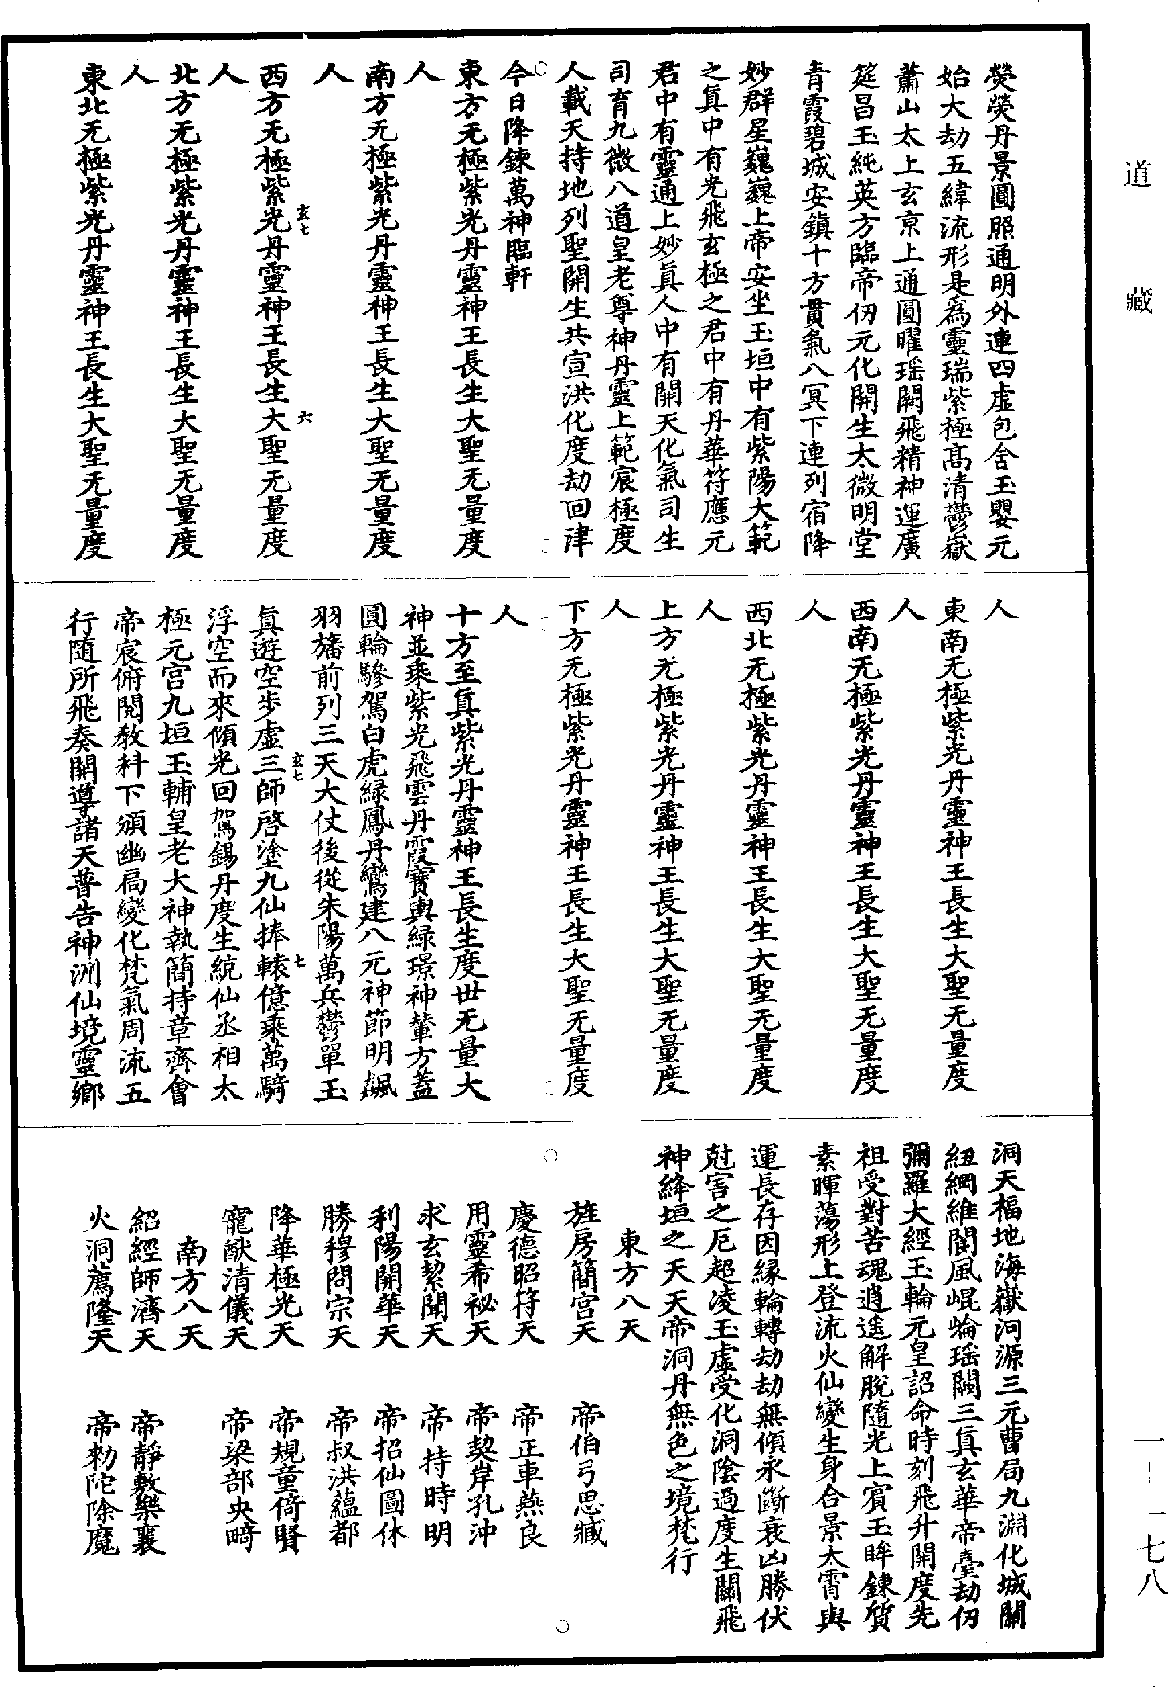 道藏
熒熒丹景圓照通明外連四虛包含玉嬰元
始大劫五緯流形是為靈瑞紫極高清鬱嶽
蕭山太上玄京上通圓曜瑶闕飛精神運廣
筵昌玉純英方臨帝仞元化開生太微明堂
青霞碧城安鎮十方貫氣八冥下連列宿降
妙群星巍巍上帝安坐玉垣中有紫陽大範
之真中有光飛玄極之君中有丹華符應元
君中有靈通上妙真人中有開天化氣司生
司育九微八道皇老尊神丹靈上範宸極度
人載天持地列聖開生共宣洪化度劫回津
今日降鍊萬神臨軒
東方无極紫光丹靈神王長生大聖无量度
人
南方无極紫光丹靈神王長生大聖无量度
人
玄七 六
西方无極紫光丹靈神王長生大聖无量度
人
北方无極紫光丹靈神王長生大聖无量度
人
東北无極紫光丹靈神王長生大聖无量度
人
東南无極紫光丹靈神王長生大聖无量度
人
西南无極紫光丹靈神王長生大聖无量度
人
西北无極紫光丹靈神王長生大聖无量度
人
上方无極紫光丹靈神王長生大聖无量度
人
下方无極紫光丹靈神王長生大聖无量度
人
十方至真紫光丹靈神王長生度世无量大
神並乘紫光飛雲丹霞寶輿綠璟神輦方蓋
圓輪驂駕白虎緑鳳丹鸞建八元神節明飊
羽旛前列三天大仗後從朱陽萬兵鬱單玉
玄七 七
真遊空步虛三師啓塗九仙捧轅億乘萬騎
浮空而來傾光回駕錫丹度生統仙丞相太
極元宫九垣玉輔皇老大神執簡持章齊會
帝宸俯閱教科下頒幽扃變化梵氣周流五
行隨所飛奏開導諸天普告神洲仙境靈鄉
洞天福地海嶽河源三元曹局九淵化城關
紐綱維閬風崐崘瑶闕三真玄華帝臺劫仞
彌羅大經玉輪元皇詔命時刻飛升開度先
祖受對苦魂逍遥解脫隨光上賓玉眸鍊質
素暉蕩形上登流火仙變生身合景太霄與
運長存因緣輪轉劫劫無傾永斷衰凶勝伏
尅害之厄超凌玉虛受化洞陰過度生關飛
神絳垣之天天帝洞丹無色之境梵行
東方八天
旌房簡宫天 帝伯弓思臧
慶德昭符天 帝正車燕良
用靈希祕天 帝契岸孔沖
求玄挈開天 帝持時明
利陽開華天 帝招仙圖休
勝穆問宗天 帝叔洪蘊都
降華極光天 帝規童倚賢
寵猷清儀天 帝梁部央疇
南方八天
紹經師濟天 帝靜敷樂襄
火洞薦隆天 帝勑陀除魔
一—一七八